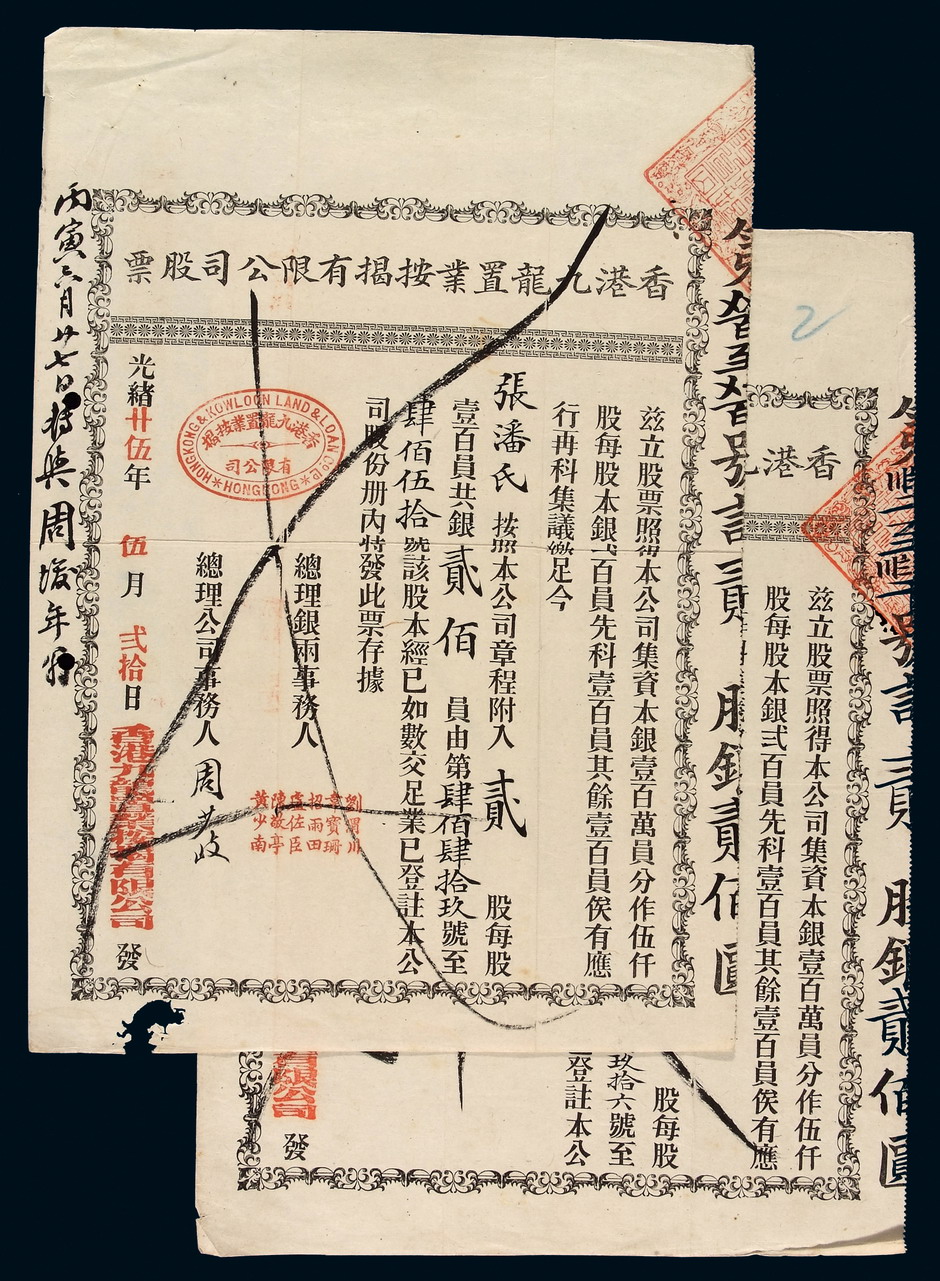 香港九龍置業按揭有限公司股票
茲立股票照得本公司集資本銀壹百萬員分作伍仟
股每股本銀弍百員先科壹百員其餘壹百員俟有應
行再科集議繳足今
張潘氏 按照本公司章程附入 貳 股每股
壹百員共銀貳佰 員由第肆佰肆拾玖號至
肆佰伍拾號該股本經已如數交足業已登註本公
司股份册內特發此票存據
總理銀兩事務人
劉渭川
韋寶珊
招雨田
盧佐臣
陳敬亭
黃少南
總理公司事務人 周少岐
HONGKONG & KOWLOON LAND & LOAN CO LD
香港九龍置業按揭
有限公司
HONGKONG
光緒廿五年 伍月 弍拾日 香港九龍置業按揭有限公司 發
丙寅六月廿七日轉與周埈年
股銀貳佰圓
2
香港
茲立股票照得本公司集資本銀壹百萬員分作伍仟
股每股本銀弍百員先科壹百員其餘壹百員俟有應
股每股
玖拾六號至
登註本公
有限公司
發
股銀貳佰圓